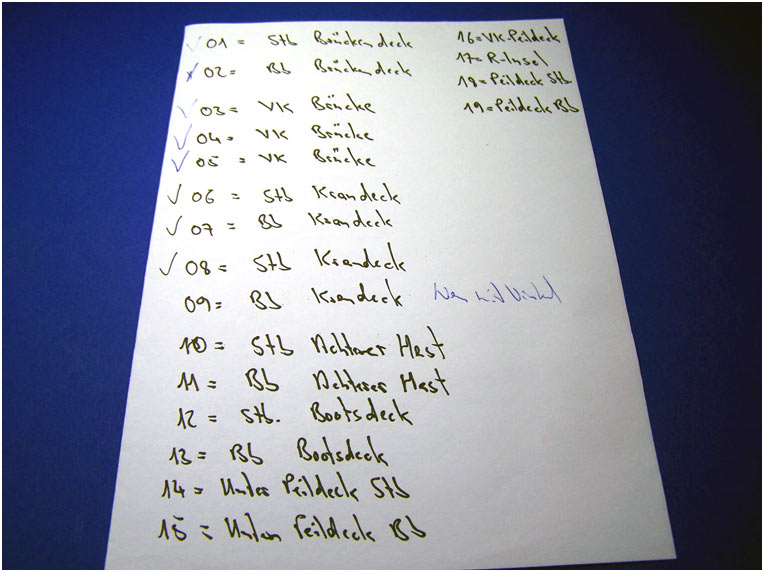 ✓ 01 = Stb Brückendeck
✓ 02 = Bb Brückendeck
✓ 03 = VK Brücke
✓ 04 = VK Brücke
✓ 05 = VK Brücke
✓ 06 = Stb Krandeck
✓ 07 = Bb Krandeck
✓ 08 = Stb Krandeck
09 = Bb Krandeck
10 = Stb Achterer Mast
11 = Bb Achterer Mast
12 = Stb. Bootsdeck
13 = Bb Bootsdeck
14 = Unter Peildeck Stb
15 = Unter Peildeck Bb
16 = VK-Peildeck
17 = R-Insel
18 = Peildeck Stb
19 = Peildeck Bb